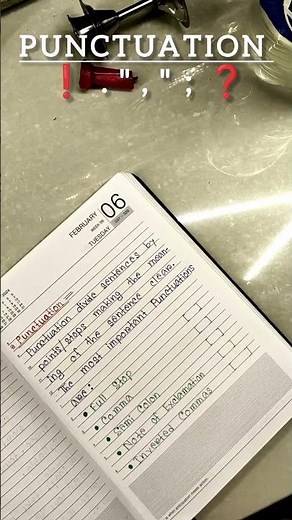 PUNCTUATION
❗ . " , " ; ❓
FEBRUARY 06
WEEK 06
TUESDAY
Punctuation
Punctuation divide sentences by
points/stops making the mean-
ing of the sentence clear.
The most important Punctuations
are:
• Full Stop
• Comma
• Semi Colon
• Note of Exclamation
• Inverted Commas